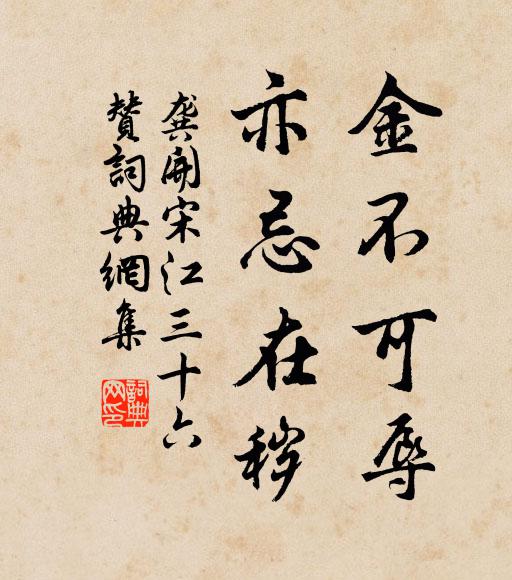 金不可辱
亦忌在秽
龚開宋江三十六
賛詞典網集
詞典网印